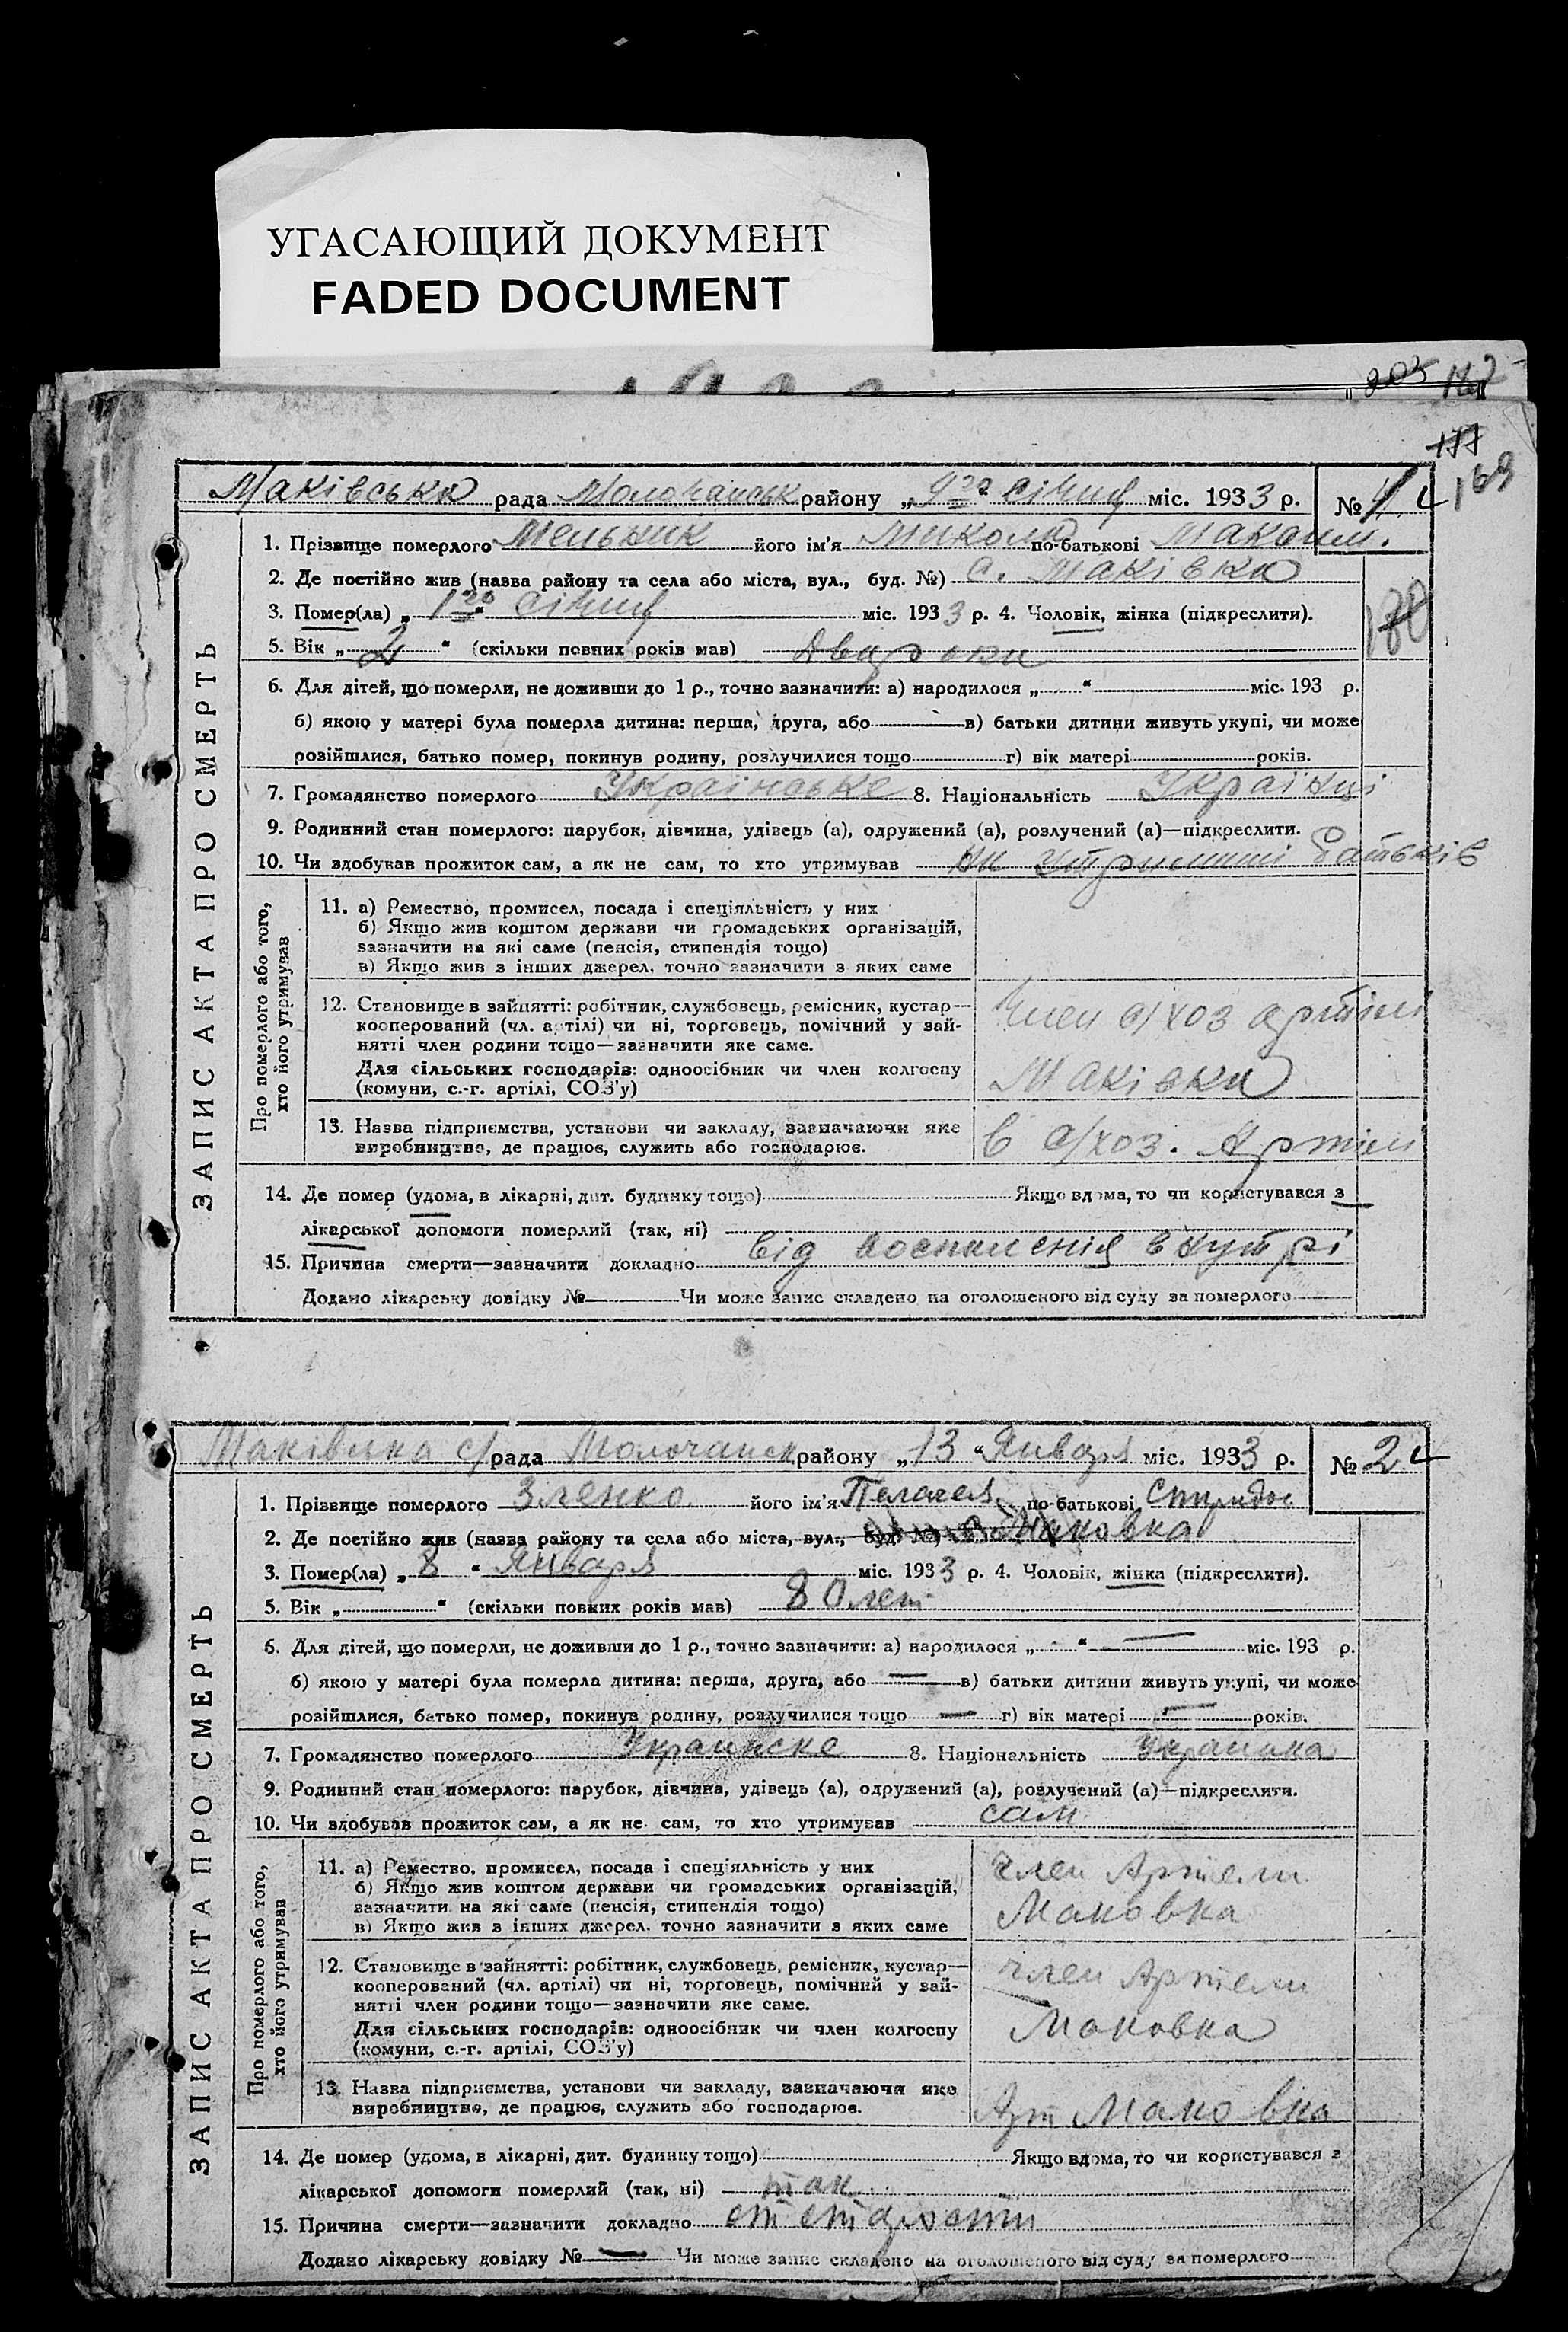 УГАСАЮЩИЙ ДОКУМЕНТ
FADED DOCUMENT
203 187
177
169
Маківська рада Молочанськ району „9го січня міс. 1933 р. №1
1. Прізвище померлого Мельник його ім'я Микола по-батькові Максим.
2. Де постійно жив (назва району та села або міста, вул., буд. №) с. Маківка
3. Помер(ла) „1го січня міс. 1933 р. 4. Чоловік, жінка (підкреслити).
5. Вік „2“ (скільки повних років мав) два роки
6. Для дітей, що померли, не доживши до 1 р., точно зазначити: а) народилося „ “ міс. 193 р.
б) якою у матері була померла дитина: перша, друга, або в) батьки дитини живуть укупі, чи може
розійшлися, батько помер, покинув родину, розлучилися тощо г) вік матері років.
7. Громадянство померлого Українське 8. Національність Українці
9. Родинний стан померлого: парубок, дівчина, удівець (а), одружений (а), розлучений (а)—підкреслити.
10. Чи здобував прожиток сам, а як не сам, то хто утримував на утриманні батьків
ЗАПИС АКТА ПРО СМЕРТЬ
Про померлого або того,
хто його утримував
11. а) Ремество, промисел, посада і спеціяльність у них
б) Якщо жив коштом держави чи громадських організацій,
зазначити на які саме (пенсія, стипендія тощо)
в) Якщо жив з інших джерел, точно зазначити з яких саме
12. Становище в зайнятті: робітник, службовець, ремісник, кустар—
кооперований (чл. артілі) чи ні, торговець, помічний у зай-
нятті член родини тощо—зазначити яке саме.
Для сільських господарів: одноосібник чи член колгоспу
(комуни, с.-г. артілі, СОЗ'у)
Член с/хоз артілі
Маківка
13. Назва підприємства, установи чи закладу, зазначаючи яке
виробництво, де працює, служить або господарює.
в с/хоз. Артілі
14. Де помер (удома, в лікарні, дит. будинку тощо) Якщо вдома, то чи користувався з
лікарської допомоги померлий (так, ні)
15. Причина смерти—зазначити докладно від воспаления внутрі
Додано лікарську довідку № Чи може запис складено на оголошеного від суду за померлого
Маківська с/рада Молочанск району „13“ Января міс. 1933 р. №2
1. Прізвище померлого Зленко його ім'я Пелагея по-батькові Спиридо
2. Де постійно жив (назва району та села або міста, вул., буд. №) Маковка
3. Помер(ла) „8“ Января міс. 1933 р. 4. Чоловік, жінка (підкреслити).
5. Вік „ “ (скільки повних років мав) 80 лет
6. Для дітей, що померли, не доживши до 1 р., точно зазначити: а) народилося „-“ — міс. 193 р.
б) якою у матері була померла дитина: перша, друга, або — в) батьки дитини живуть укупі, чи може
розійшлися, батько помер, покинув родину, розлучилися тощо — г) вік матері — років.
7. Громадянство померлого Украинске 8. Національність Украинка
9. Родинний стан померлого: парубок, дівчина, удівець (а), одружений (а), розлучений (а)—підкреслити.
10. Чи здобував прожиток сам, а як не сам, то хто утримував сам
ЗАПИС АКТА ПРО СМЕРТЬ
Про померлого або того,
хто його утримував
11. а) Ремество, промисел, посада і спеціяльність у них
б) Якщо жив коштом держави чи громадських організацій,
зазначити на які саме (пенсія, стипендія тощо)
в) Якщо жив з інших джерел, точно зазначити з яких саме
член Артели
Маковка
12. Становище в зайнятті: робітник, службовець, ремісник, кустар—
кооперований (чл. артілі) чи ні, торговець, помічний у зай-
нятті член родини тощо—зазначити яке саме.
Для сільських господарів: одноосібник чи член колгоспу
(комуни, с.-г. артілі, СОЗ'у)
член Артели
Маковка
13. Назва підприємства, установи чи закладу, зазначаючи яке
виробництво, де працює, служить або господарює.
Арт Маковка
14. Де помер (удома, в лікарні, дит. будинку тощо) Якщо вдома, то чи користувався з
лікарської допомоги померлий (так, ні) так
15. Причина смерти—зазначити докладно от старости
Додано лікарську довідку № — Чи може запис складено на оголошеного від суду за померлого